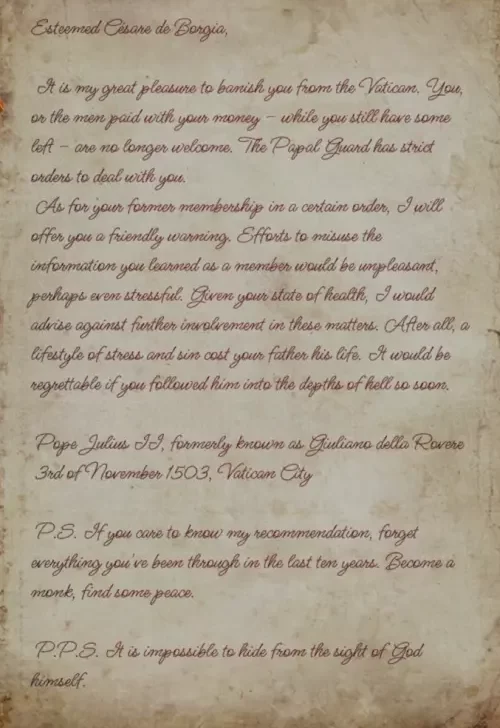 Esteemed Césare de Borgia,
It is my great pleasure to banish you from the Vatican. You,
or the men paid with your money – while you still have some
left – are no longer welcome. The Papal Guard has strict
orders to deal with you.
As for your former membership in a certain order, I will
offer you a friendly warning. Efforts to misuse the
information you learned as a member would be unpleasant,
perhaps even stressful. Given your state of health, I would
advise against further involvement in these matters. After all, a
lifestyle of stress and sin cost your father his life. It would be
regrettable if you followed him into the depths of hell so soon.
Pope Julius II, formerly known as Giuliano della Rovere
3rd of November 1503, Vatican City
P.S. If you care to know my recommendation, forget
everything you've been through in the last ten years. Become a
monk, find some peace.
P.P.S. It is impossible to hide from the sight of God
himself.